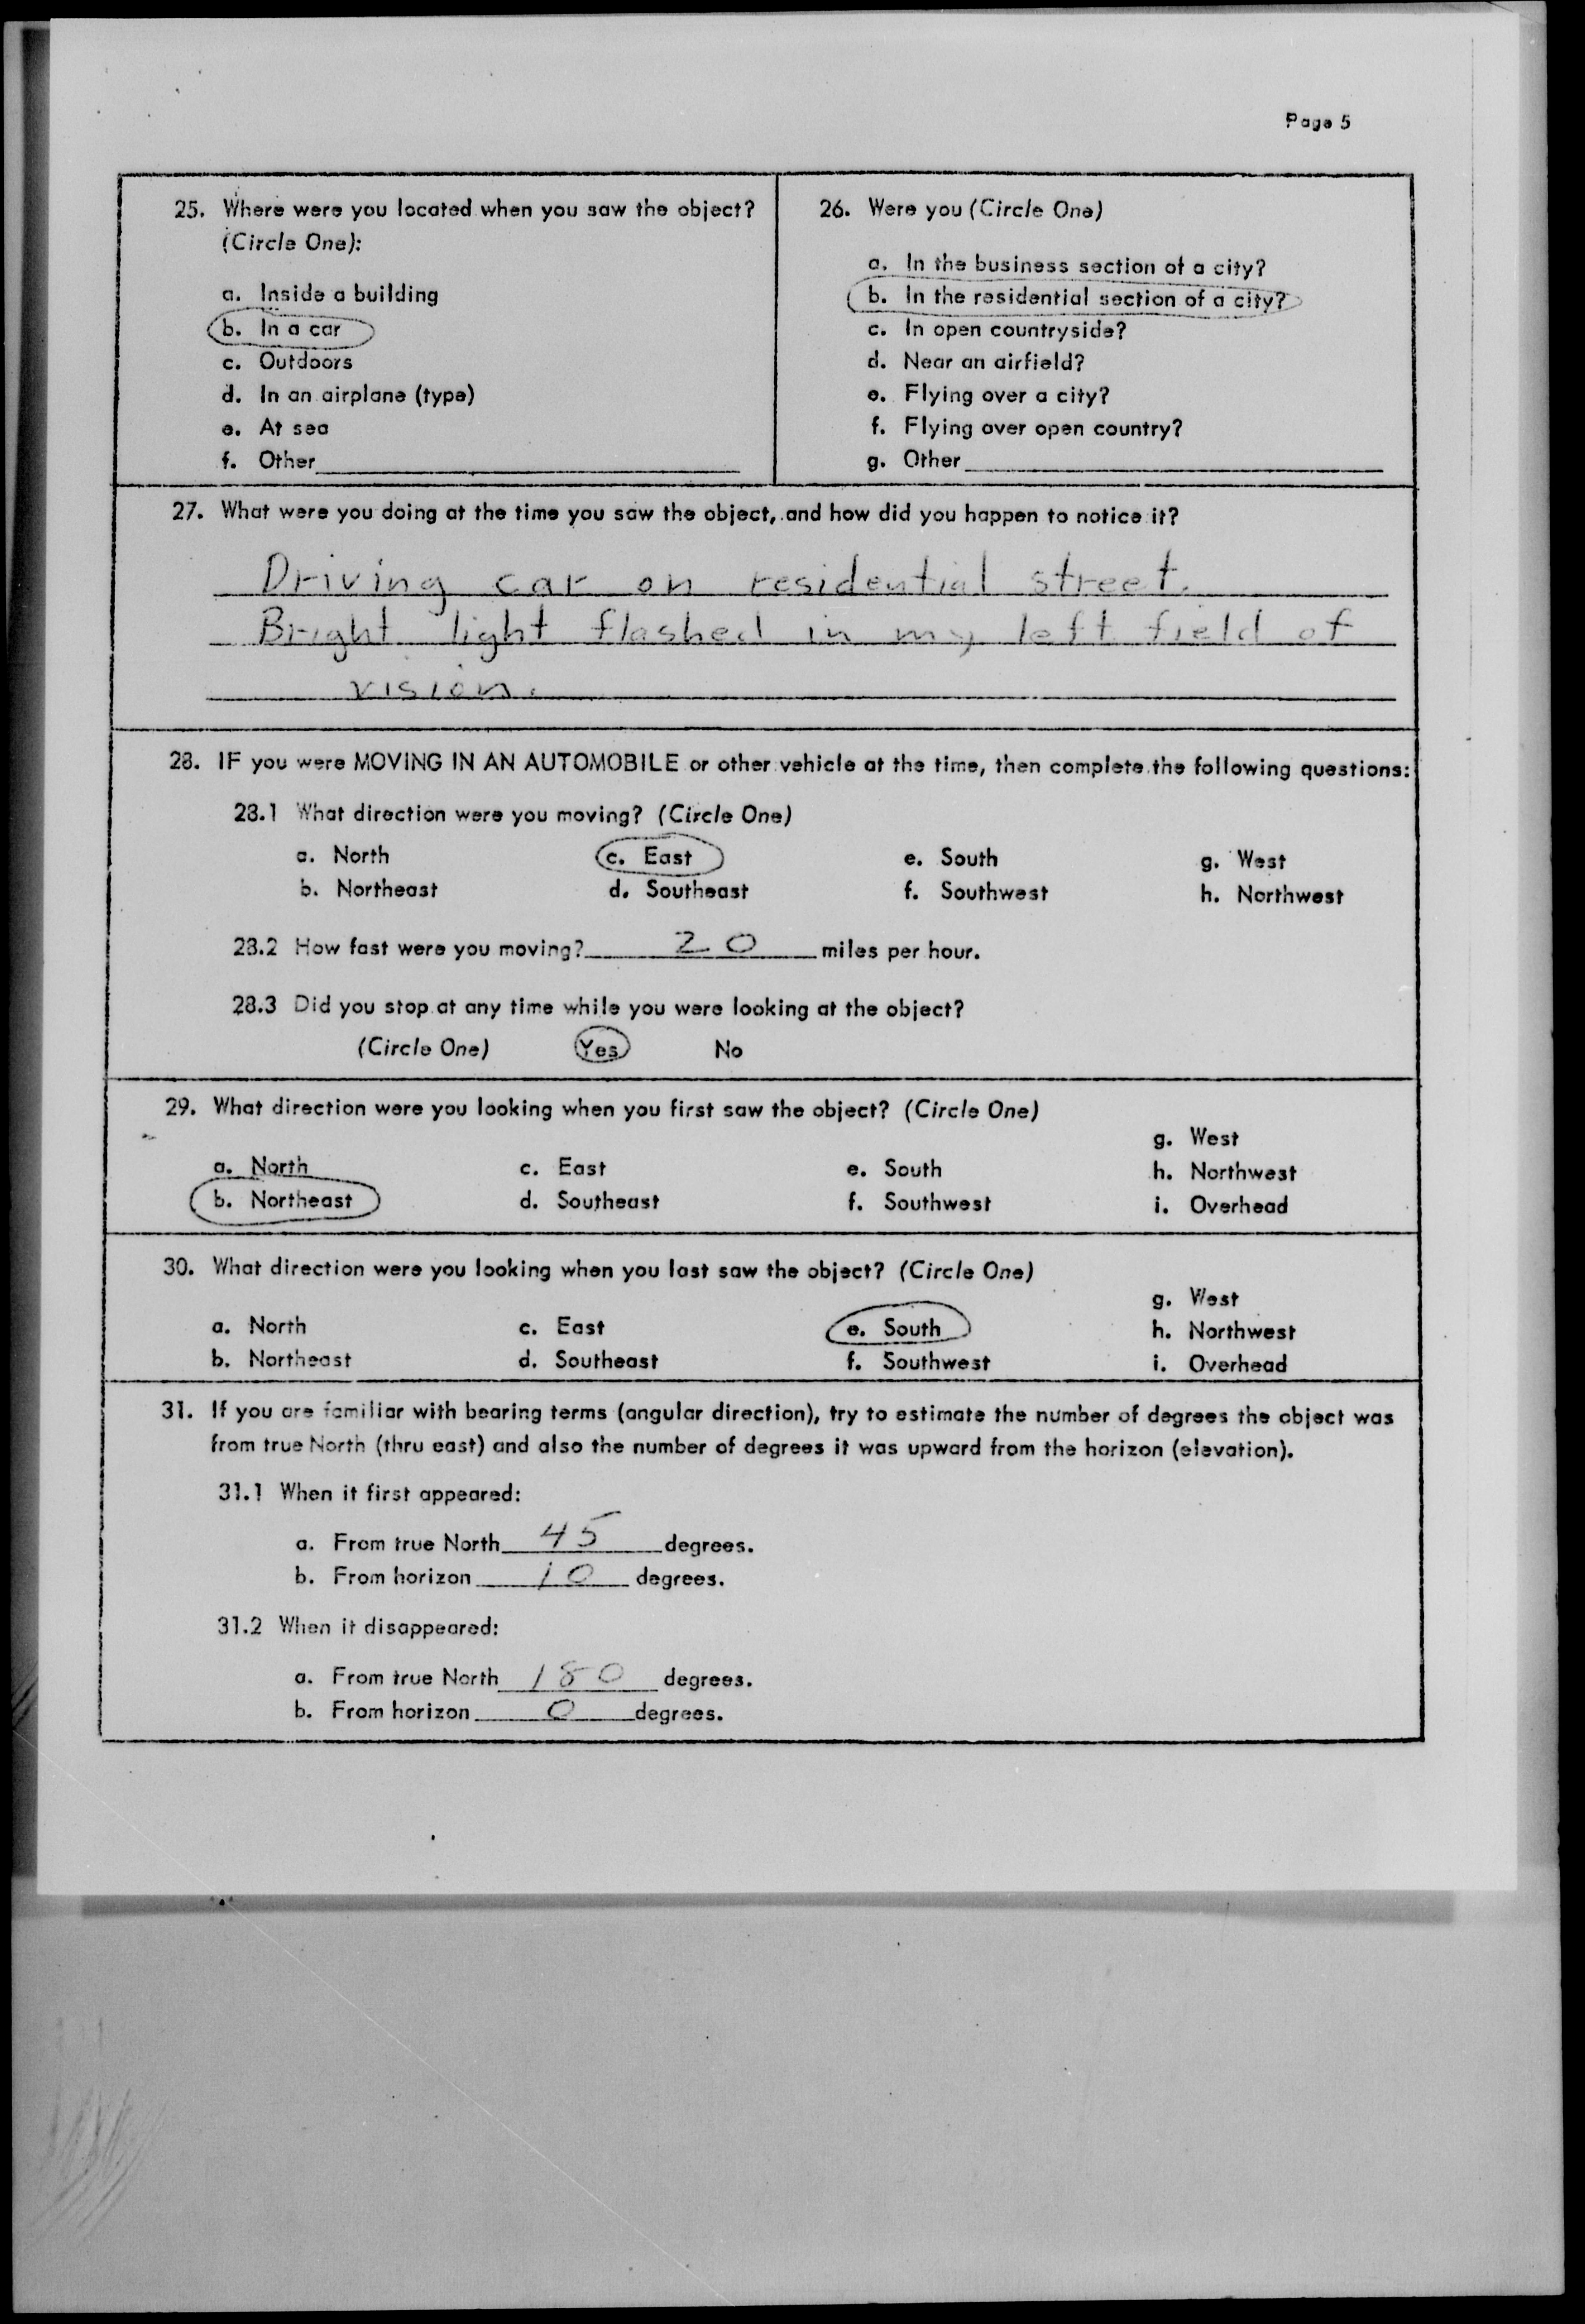 Page 5
25. Where were you located when you saw the object?
(Circle One):
a. Inside a building
b. In a car
c. Outdoors
d. In an airplane (type)
e. At sea
f. Other
26. Were you (Circle One)
a. In the business section of a city?
b. In the residential section of a city?
c. In open countryside?
d. Near an airfield?
e. Flying over a city?
f. Flying over open country?
g. Other
27. What were you doing at the time you saw the object, and how did you happen to notice it?
Driving car on residential street.
Bright light flashed in my left field of
vision.
28. IF you were MOVING IN AN AUTOMOBILE or other vehicle at the time, then complete the following questions:
28.1 What direction were you moving? (Circle One)
a. North c. East e. South g. West
b. Northeast d. Southeast f. Southwest h. Northwest
28.2 How fast were you moving? 20 miles per hour.
28.3 Did you stop at any time while you were looking at the object?
(Circle One) Yes No
29. What direction were you looking when you first saw the object? (Circle One)
g. West
a. North c. East e. South h. Northwest
b. Northeast d. Southeast f. Southwest i. Overhead
30. What direction were you looking when you last saw the object? (Circle One)
g. West
a. North c. East e. South h. Northwest
b. Northeast d. Southeast f. Southwest i. Overhead
31. If you are familiar with bearing terms (angular direction), try to estimate the number of degrees the object was
from true North (thru east) and also the number of degrees it was upward from the horizon (elevation).
31.1 When it first appeared:
a. From true North 45 degrees.
b. From horizon 10 degrees.
31.2 When it disappeared:
a. From true North 180 degrees.
b. From horizon 0 degrees.